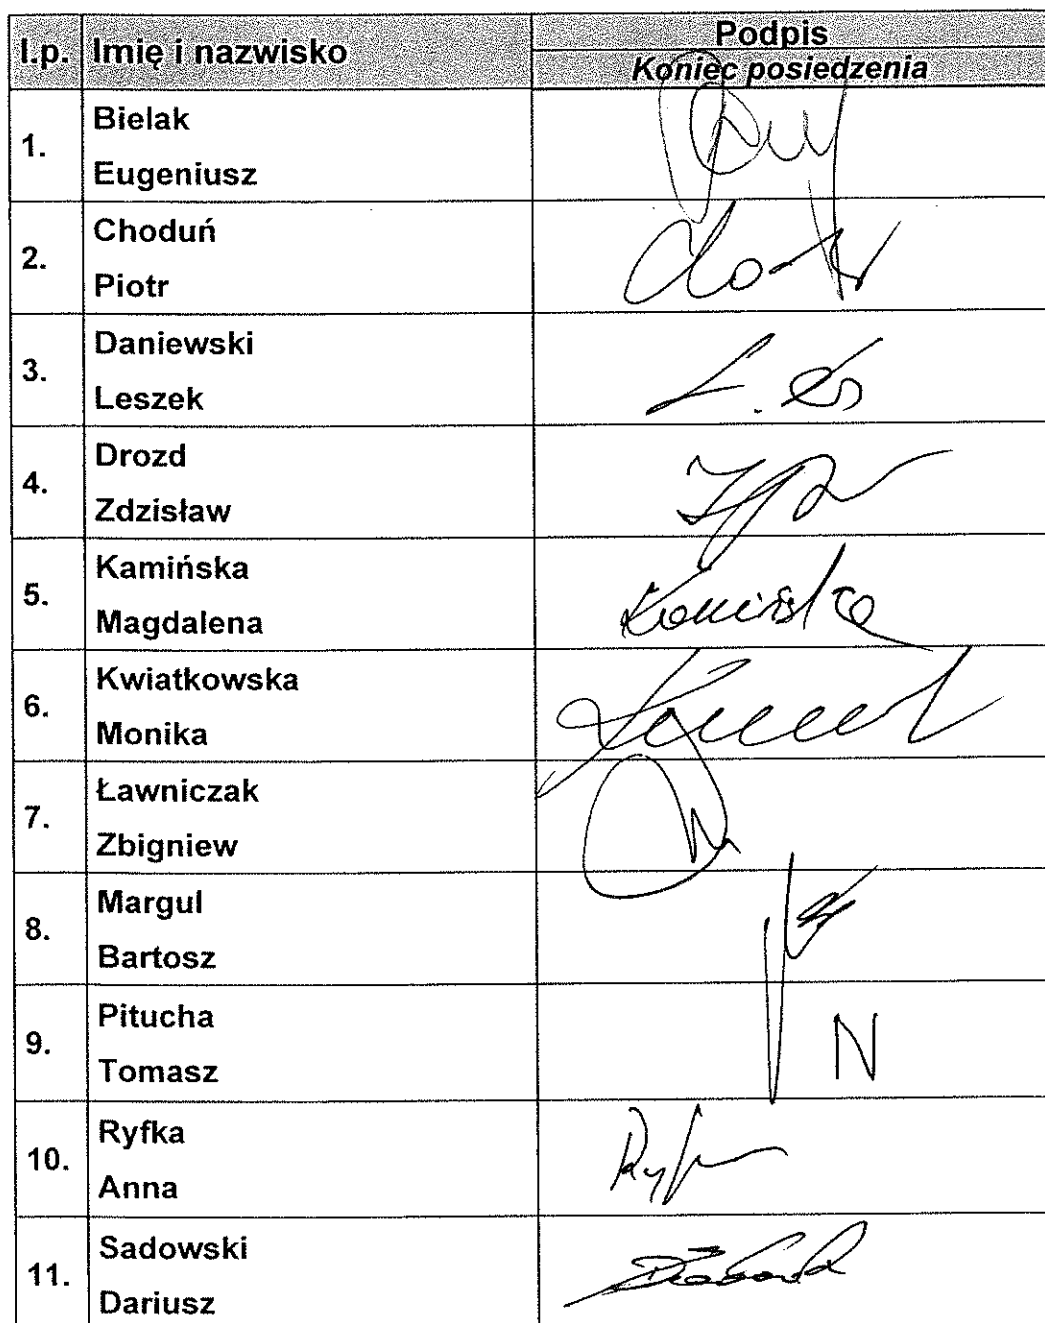 l.p. Imię i nazwisko Podpis
Koniec posiedzenia
1. Bielak
Eugeniusz
2. Choduń
Piotr
3. Daniewski
Leszek
4. Drozd
Zdzisław
5. Kamińska
Magdalena Kamińska
6. Kwiatkowska
Monika
7. Ławniczak
Zbigniew N
8. Margul
Bartosz
9. Pitucha
Tomasz N
10. Ryfka
Anna
11. Sadowski
Dariusz